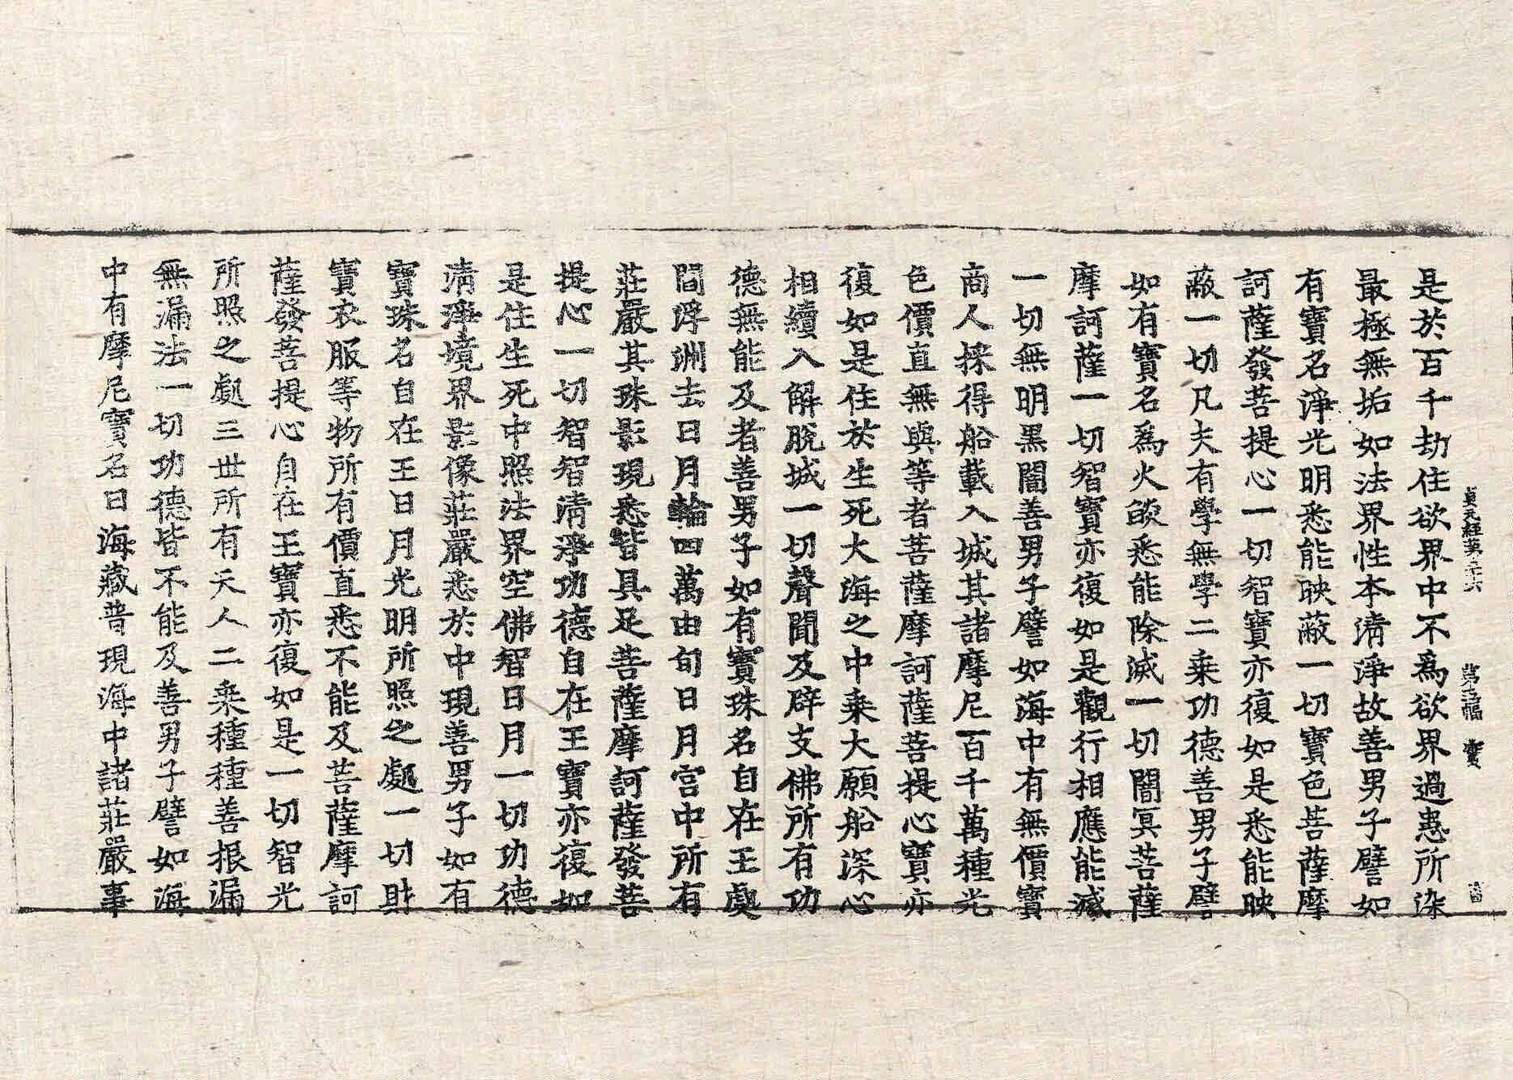 貞元經第三十六 第十三幅 寶
是於百千劫住欲界中不為欲界過患所染
最極無垢如法界性本清淨故善男子譬如
有寶名淨光明悉能映蔽一切寶色菩薩摩
訶薩發菩提心一切智寶亦復如是悉能映
蔽一切凡夫有學無學二乘功德善男子譬
如有寶名為火燄悉能除滅一切闇冥菩薩
摩訶薩一切智寶亦復如是觀行相應能滅
一切無明黑闇善男子譬如海中有無價寶
商人採得船載入城其諸摩尼百千萬種光
色價直無與等者菩薩摩訶薩菩提心寶亦
復如是住於生死大海之中乘大願船深心
相續入解脫城一切聲聞及辟支佛所有功
德無能及者善男子如有寶珠名自在王處
閻浮洲去日月輪四萬由旬日月宮中所有
莊嚴其珠影現悉皆具足菩薩摩訶薩發菩
提心一切智智清淨功德自在王寶亦復如
是住生死中照法界空佛智日月一切功德
清淨境界影像莊嚴悉於中現善男子如有
寶珠名自在王日月光明所照之處一切財
寶衣服等物所有價直悉不能及菩薩摩訶
薩發菩提心自在王寶亦復如是一切智光
所照之處三世所有天人二乘種種善根漏
無漏法一切功德皆不能及善男子譬如海
中有摩尼寶名曰海藏普現海中諸莊嚴事